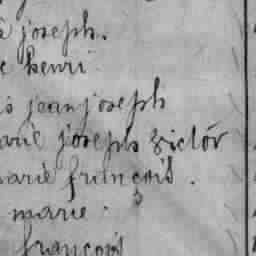 joseph.
henri
jean joseph
joseph victor
marie françois.
marie.
françois